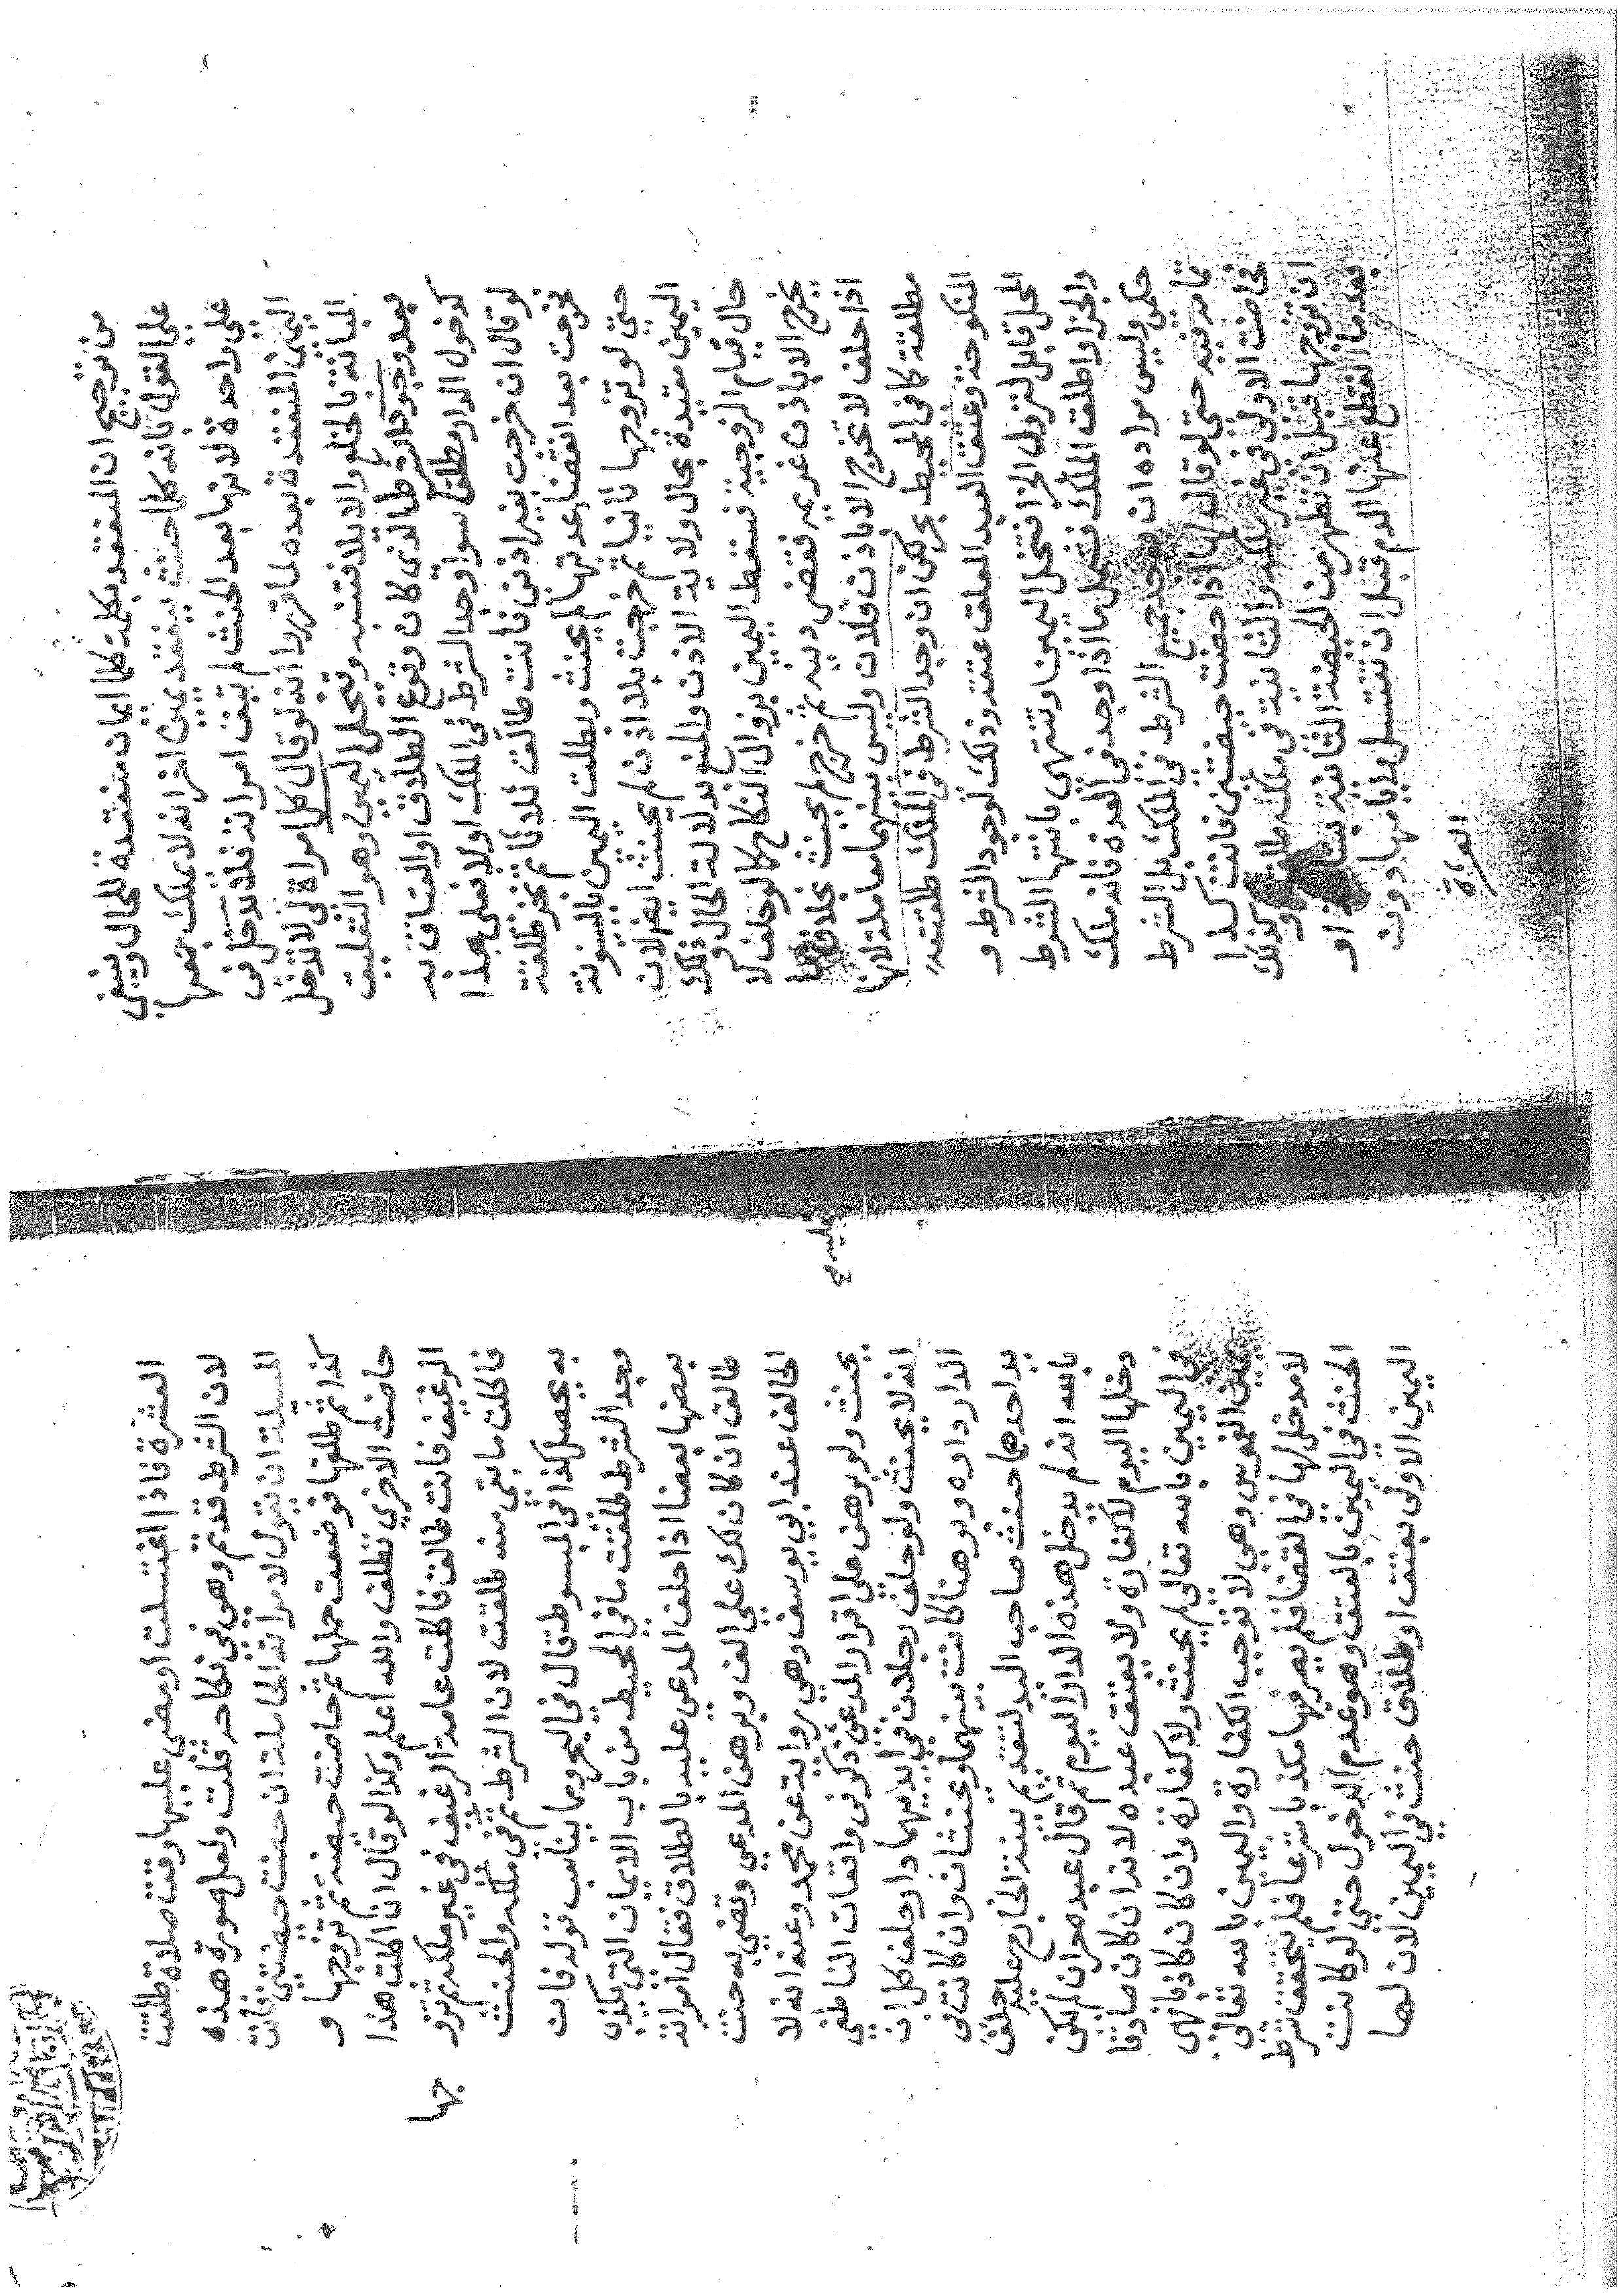 من ترجيح ان المنعقد بكلمة كلما ايمان منعقدة للحال وينبغي
على القول بانه كلما حنث ينعقد يمين اخرى انه لا يملك جمعها
على واحدة لانها بعد الحنث لم تبق امراته فلا تدخل في
اليمين المنعقدة بعده لما قرروا انه لو قال كل امراة لي لا تدخل
المبانة بالخلع والايلا فتنبه وتنحل اليمين وهو التعليق
بعد وجود الشرط الذي كان وقوع الطلاق او العتاق به
كدخول الدار مطلقا سوا وجد الشرط في الملك او لا فعلى هذا
لو قال ان خرجت بغير اذني فانت طالق ثلاثا ثم نجز طلقة
فخرجت بعد انقضاء عدتها لم يحنث وبطلت اليمين بالبينونة
حتى لو تزوجها ثانيا ثم خرجت بلا اذن لم يحنث ايضا لان
اليمين مقيدة بحال ولاية الاذن والمنع بدلالة الحال وذلك
حال قيام الزوجية فتسقط اليمين بزوال النكاح كما لو حلف لا
يخرج الا باذن غريمه فقضى دينه ثم خرج لم يحنث بخلاف ما
اذا حلف لا تخرج الا باذن فلان وليس بينهما معاملة لانها
مطلقة كما في المحيط بحر لكن ان وجد الشرط في الملك طلقت
المنكوحة وعتق العبد المعلق عتقه وذلك لوجود الشرط و
المحل قابل لنزول الجزا فتنحل اليمين وتنتهي بانتها الشرط
والجزا واطلق الملك فشمل ما اذا وجد في العدة فانه ملك
حكمي وليس مراده ان يوجد جميع الشرط في الملك بل الشرط
تمامه فيه حتى لو قال لها اذا حضت حيضتين فانت كذا
فحاضت الاولى في غير ملكه والثانية في ملكه طلقت وكذلك
ان تزوجها قبل ان تطهر من الحيضة الثانية بساعة او
بعد ما انقطع عنها الدم قبل ان تغتسل وايامها دون
العشرة
العشرة فاذا اغتسلت او مضى عليها وقت صلاة طلقت
لان الشرط قد تم وهي في نكاحه قلت ولعل صورة هذه
المسئلة ان يقول لامراته الحاملة ان حضت حيضتين فانت
كذا ثم طلقها فوضعت حملها ثم حاضت حيضة ثم تزوجها و
حاضت الاخرى تطلق والله اعلم وكذا لو قال ان اكلت هذا
الرغيف فانت طالق فاكلت عامة الرغيف في غير ملكه ثم تزو
جها
فاكلت ما بقي منه طلقت لان الشرط تم في ملكه والحنث
به يحصل كذا في المبسوط قال في البحر ومما يناسب قوله فان
وجد الشرط طلقت ما في المحيط من باب الايمان التي يكذب
بعضها بعضا اذا حلف المدعى عليه بالطلاق فقال امراته
طالق ان كان لك علي الف وبرهن المدعي وقضي به حنث
الحالف عند ابي يوسف وهي رواية عن محمد وعنه انه لا
يحنث ولو برهن على اقرار المدعى عليه ذكر في واقعات الناطفي
انه لا يحنث ولو حلف رجلان في ايديهما دار حلف كل ان
الدار داره وبرهنا كانت بينهما ويحنثان وان كانت في
يد احدهما حنث صاحب اليد لتقديم بينة الخارج عليه حلف
بالله انه لم يدخل هذه الدار اليوم ثم قال عبده حر ان لم يكن
دخلها اليوم لا كفارة ولا يعتق عبده لانه ان كان صادقا
في اليمين بالله تعالى لم يحنث ولا كفارة وان كان كاذبا فهي
يمين الغموس وهي لا توجب الكفارة واليمين بالله تعالى
لا مدخل لها في القضا فلم يصر فيها مكذبا شرعا فلم يتحقق شرط
الحنث في اليمين بالعتق وهو عدم الدخول حتى لو كانت
اليمين الاولى بعتق او طلاق حنث في اليمين لان لها